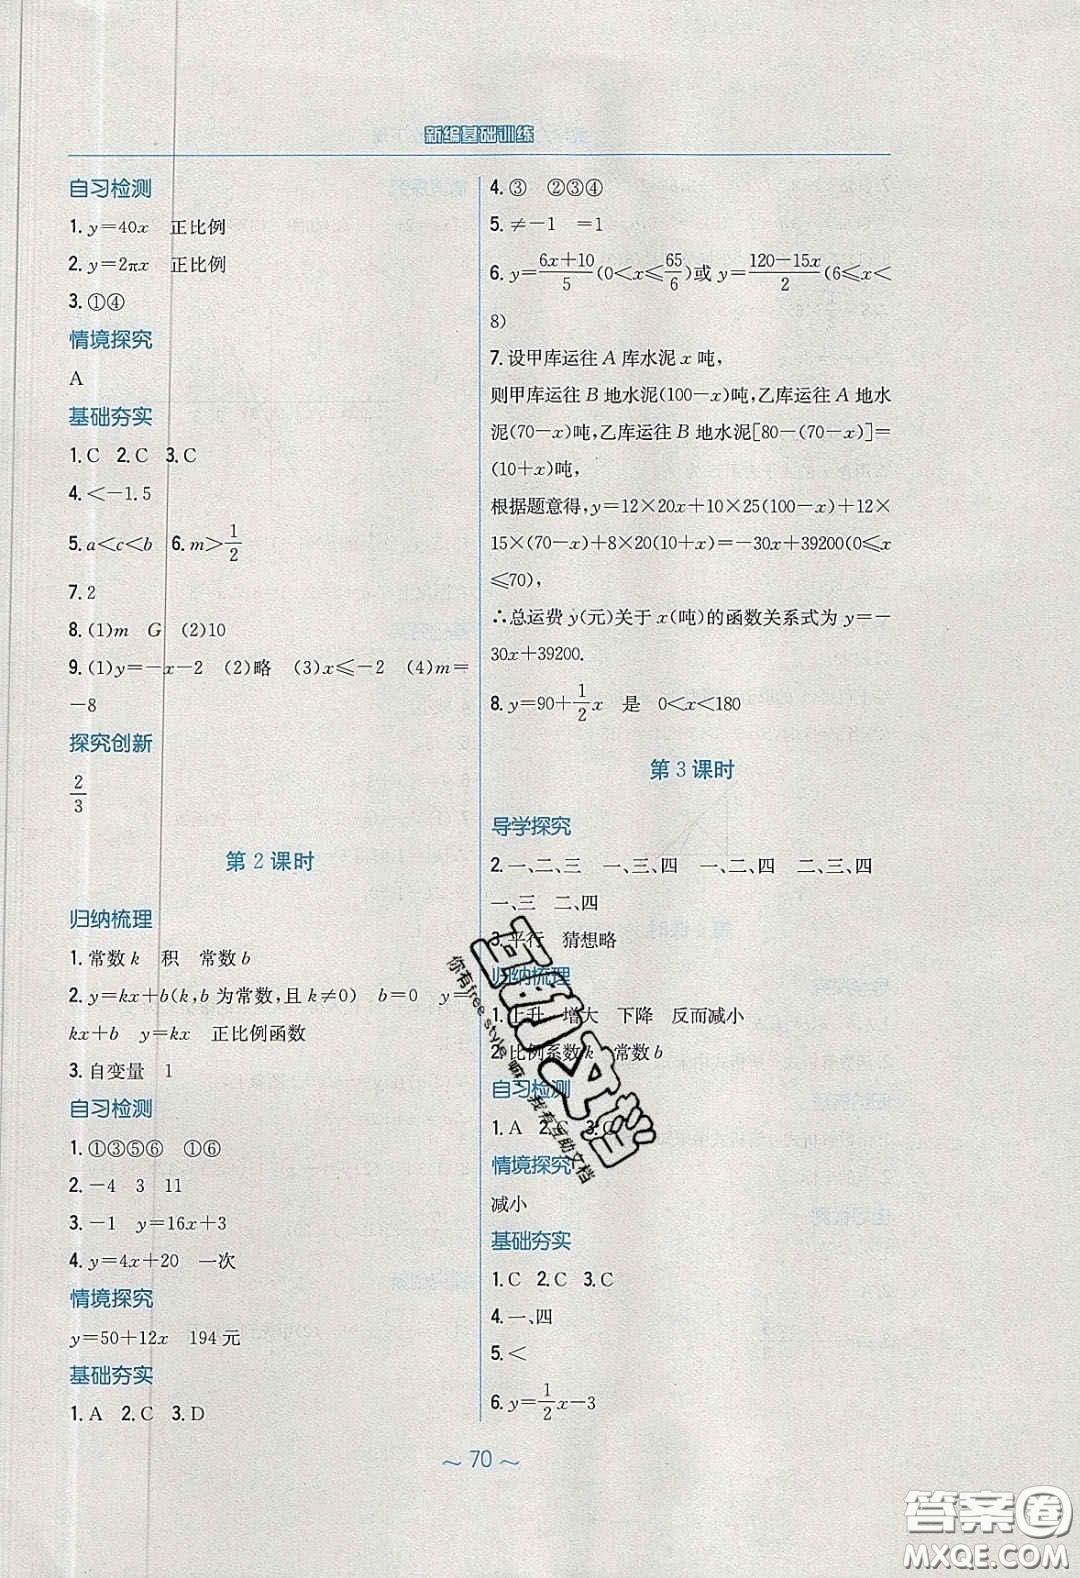 新编基础训练
自习检测
1. y=40x 正比例
2. y=2πx 正比例
3. ①④
情境探究
A
基础夯实
1. C 2. C 3. C
4. <-1.5
5. a<c<b 6. m>1/2
7. 2
8. (1)m G (2)10
9. (1)y=-x-2 (2)略 (3)x≤-2 (4)m=
-8
探究创新
2/3
第2课时
归纳梳理
1. 常数 k 积 常数 b
2. y=kx+b(k,b 为常数,且 k≠0) b=0 y=
kx+b y=kx 正比例函数
3. 自变量 1
自习检测
1. ①③⑤⑥ ①⑥
2. -4 3 11
3. -1 y=16x+3
4. y=4x+20 一次
情境探究
y=50+12x 194 元
基础夯实
1. A 2. C 3. D
4. ③ ②③④
5. ≠-1 =1
6. y=(6x+10)/5(0<x≤65/6)或 y=(120-15x)/2(6≤x<
8)
7. 设甲库运往 A 库水泥 x 吨,
则甲库运往 B 地水泥(100-x)吨,乙库运往 A 地水
泥(70-x)吨,乙库运往 B 地水泥[80-(70-x)]=
(10+x)吨,
根据题意得,y=12×20x+10×25(100-x)+12×
15×(70-x)+8×20(10+x)=-30x+39200(0≤x
≤70),
∴总运费 y(元)关于 x(吨)的函数关系式为 y=-
30x+39200.
8. y=90+1/2x 是 0<x<180
第3课时
导学探究
2. 一、二、三 一、三、四 一、二、四 二、三、四
一、三 二、四
3. 平行 猜想略
归纳梳理
1. 上升 增大 下降 反而减小
2. 比例系数 k 常数 b
自习检测
1. A 2. C 3. C
情境探究
减小
基础夯实
1. C 2. C 3. C
4. 一、四
5. <
6. y=1/2x-3
~ 70 ~
互助文档
你有free style嘛,我有互助文档
答案圈
MXQE.COM